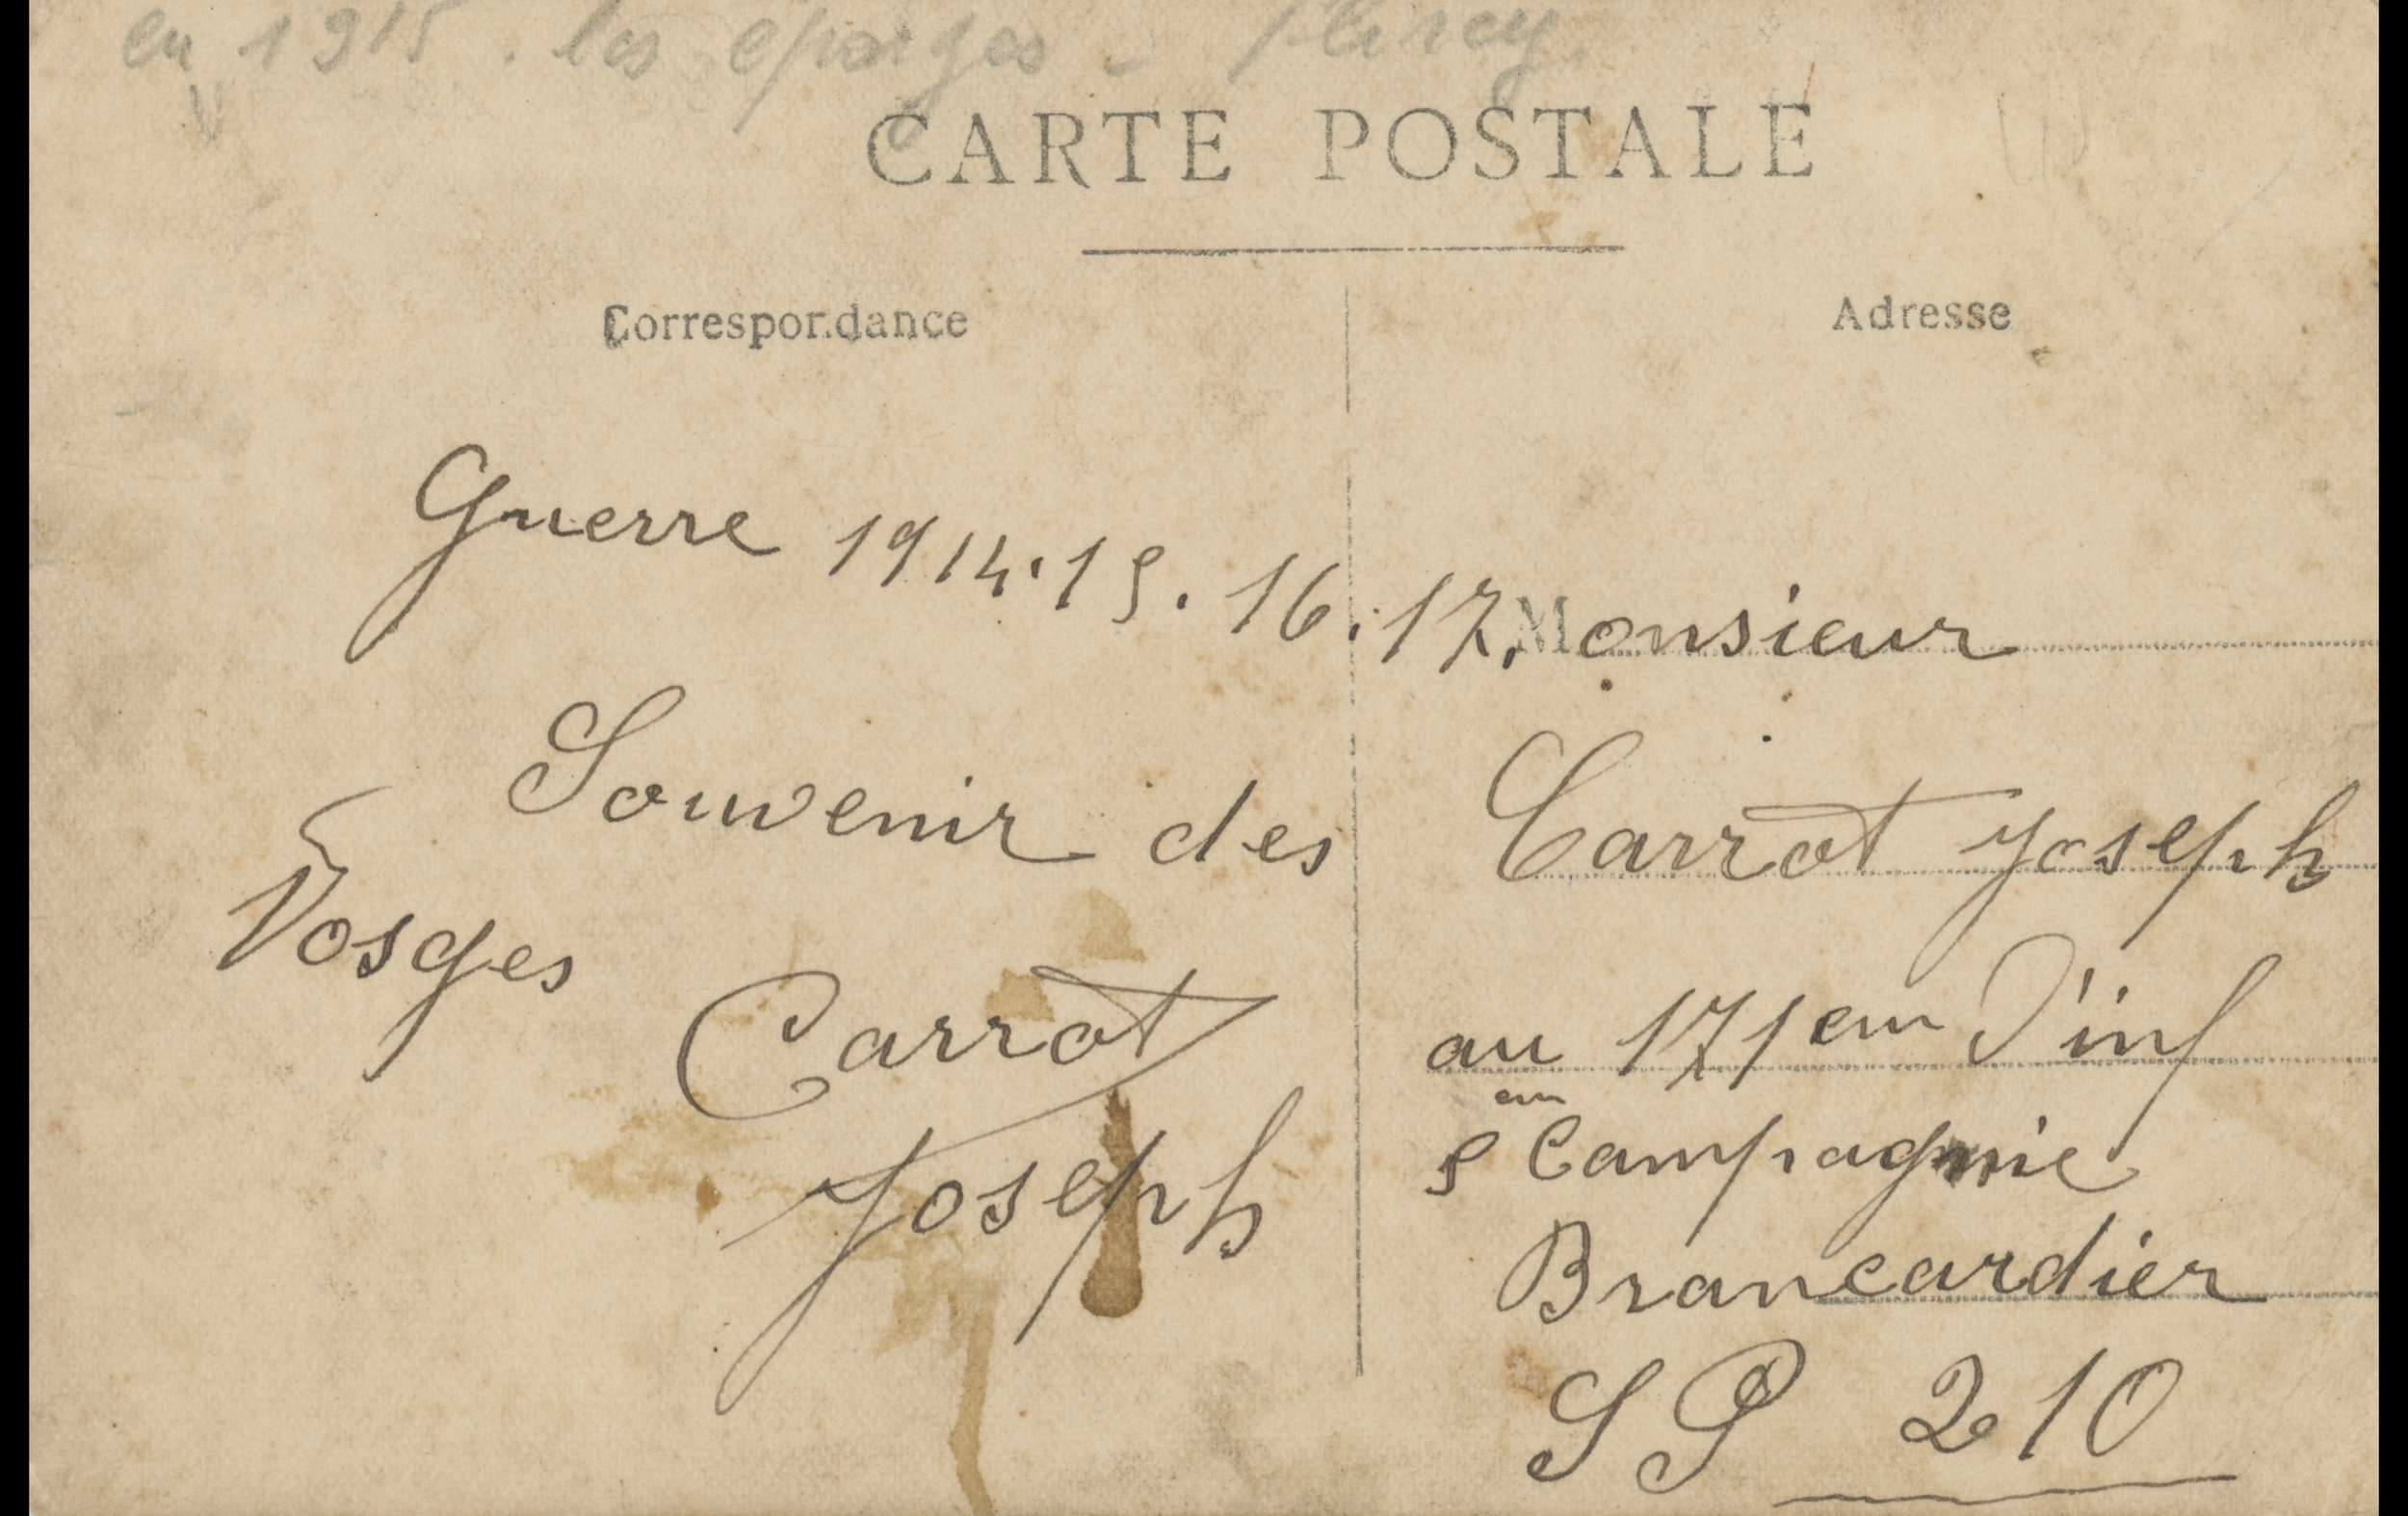 en 1915. les eparges -
CARTE POSTALE
Correspondance
Adresse
Guerre 1914.15.16.17.
Souvenir des
Vosges
Carrot
Joseph
Monsieur
Carrot Joseph
au 171em D'inf
5em Compagnie
Brancardier
SP 210